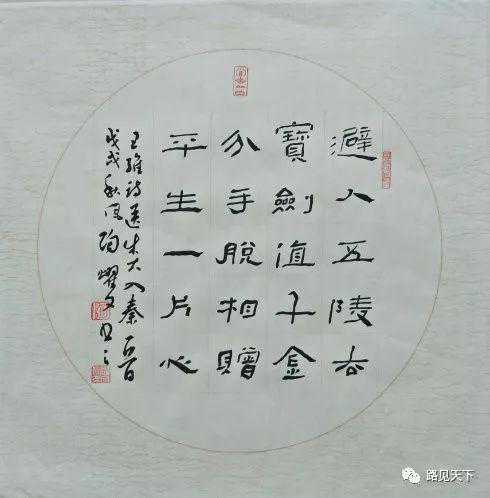 避人五陵去
寶劍直千金
分手脫相贈
平生一片心
王維詩送朱大入秦
戊戌秋月陶耀文
路见天下